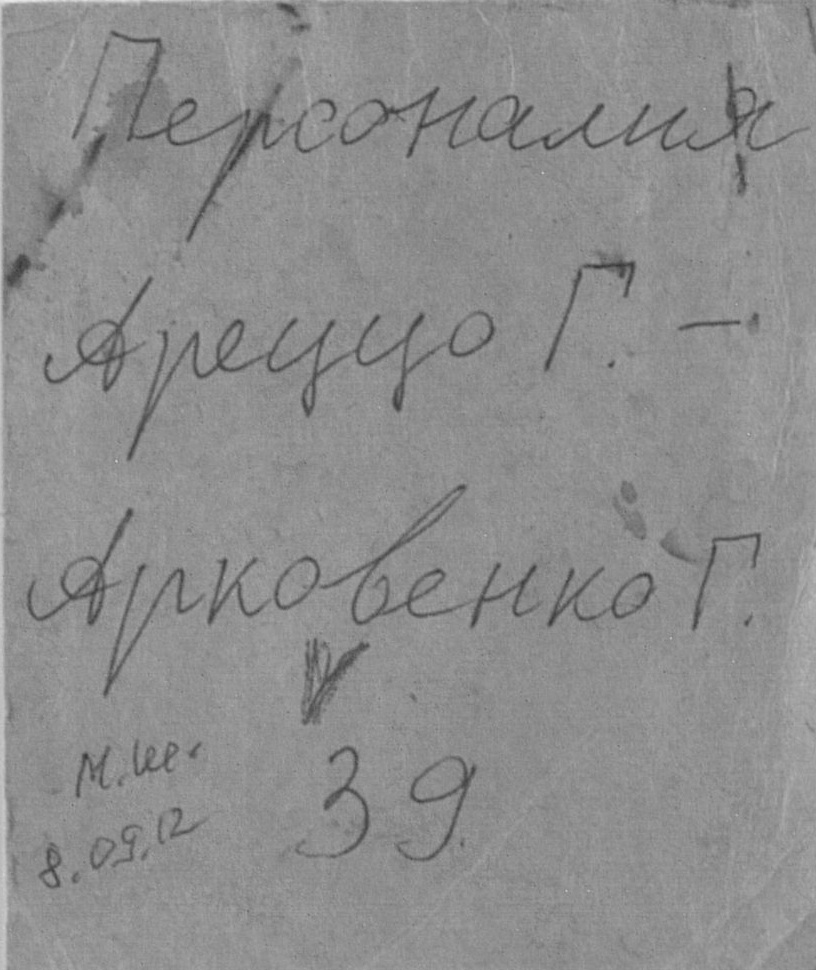 Персоналия
Ареццо Г. –
Арковенко Г.
39.
8.09.12